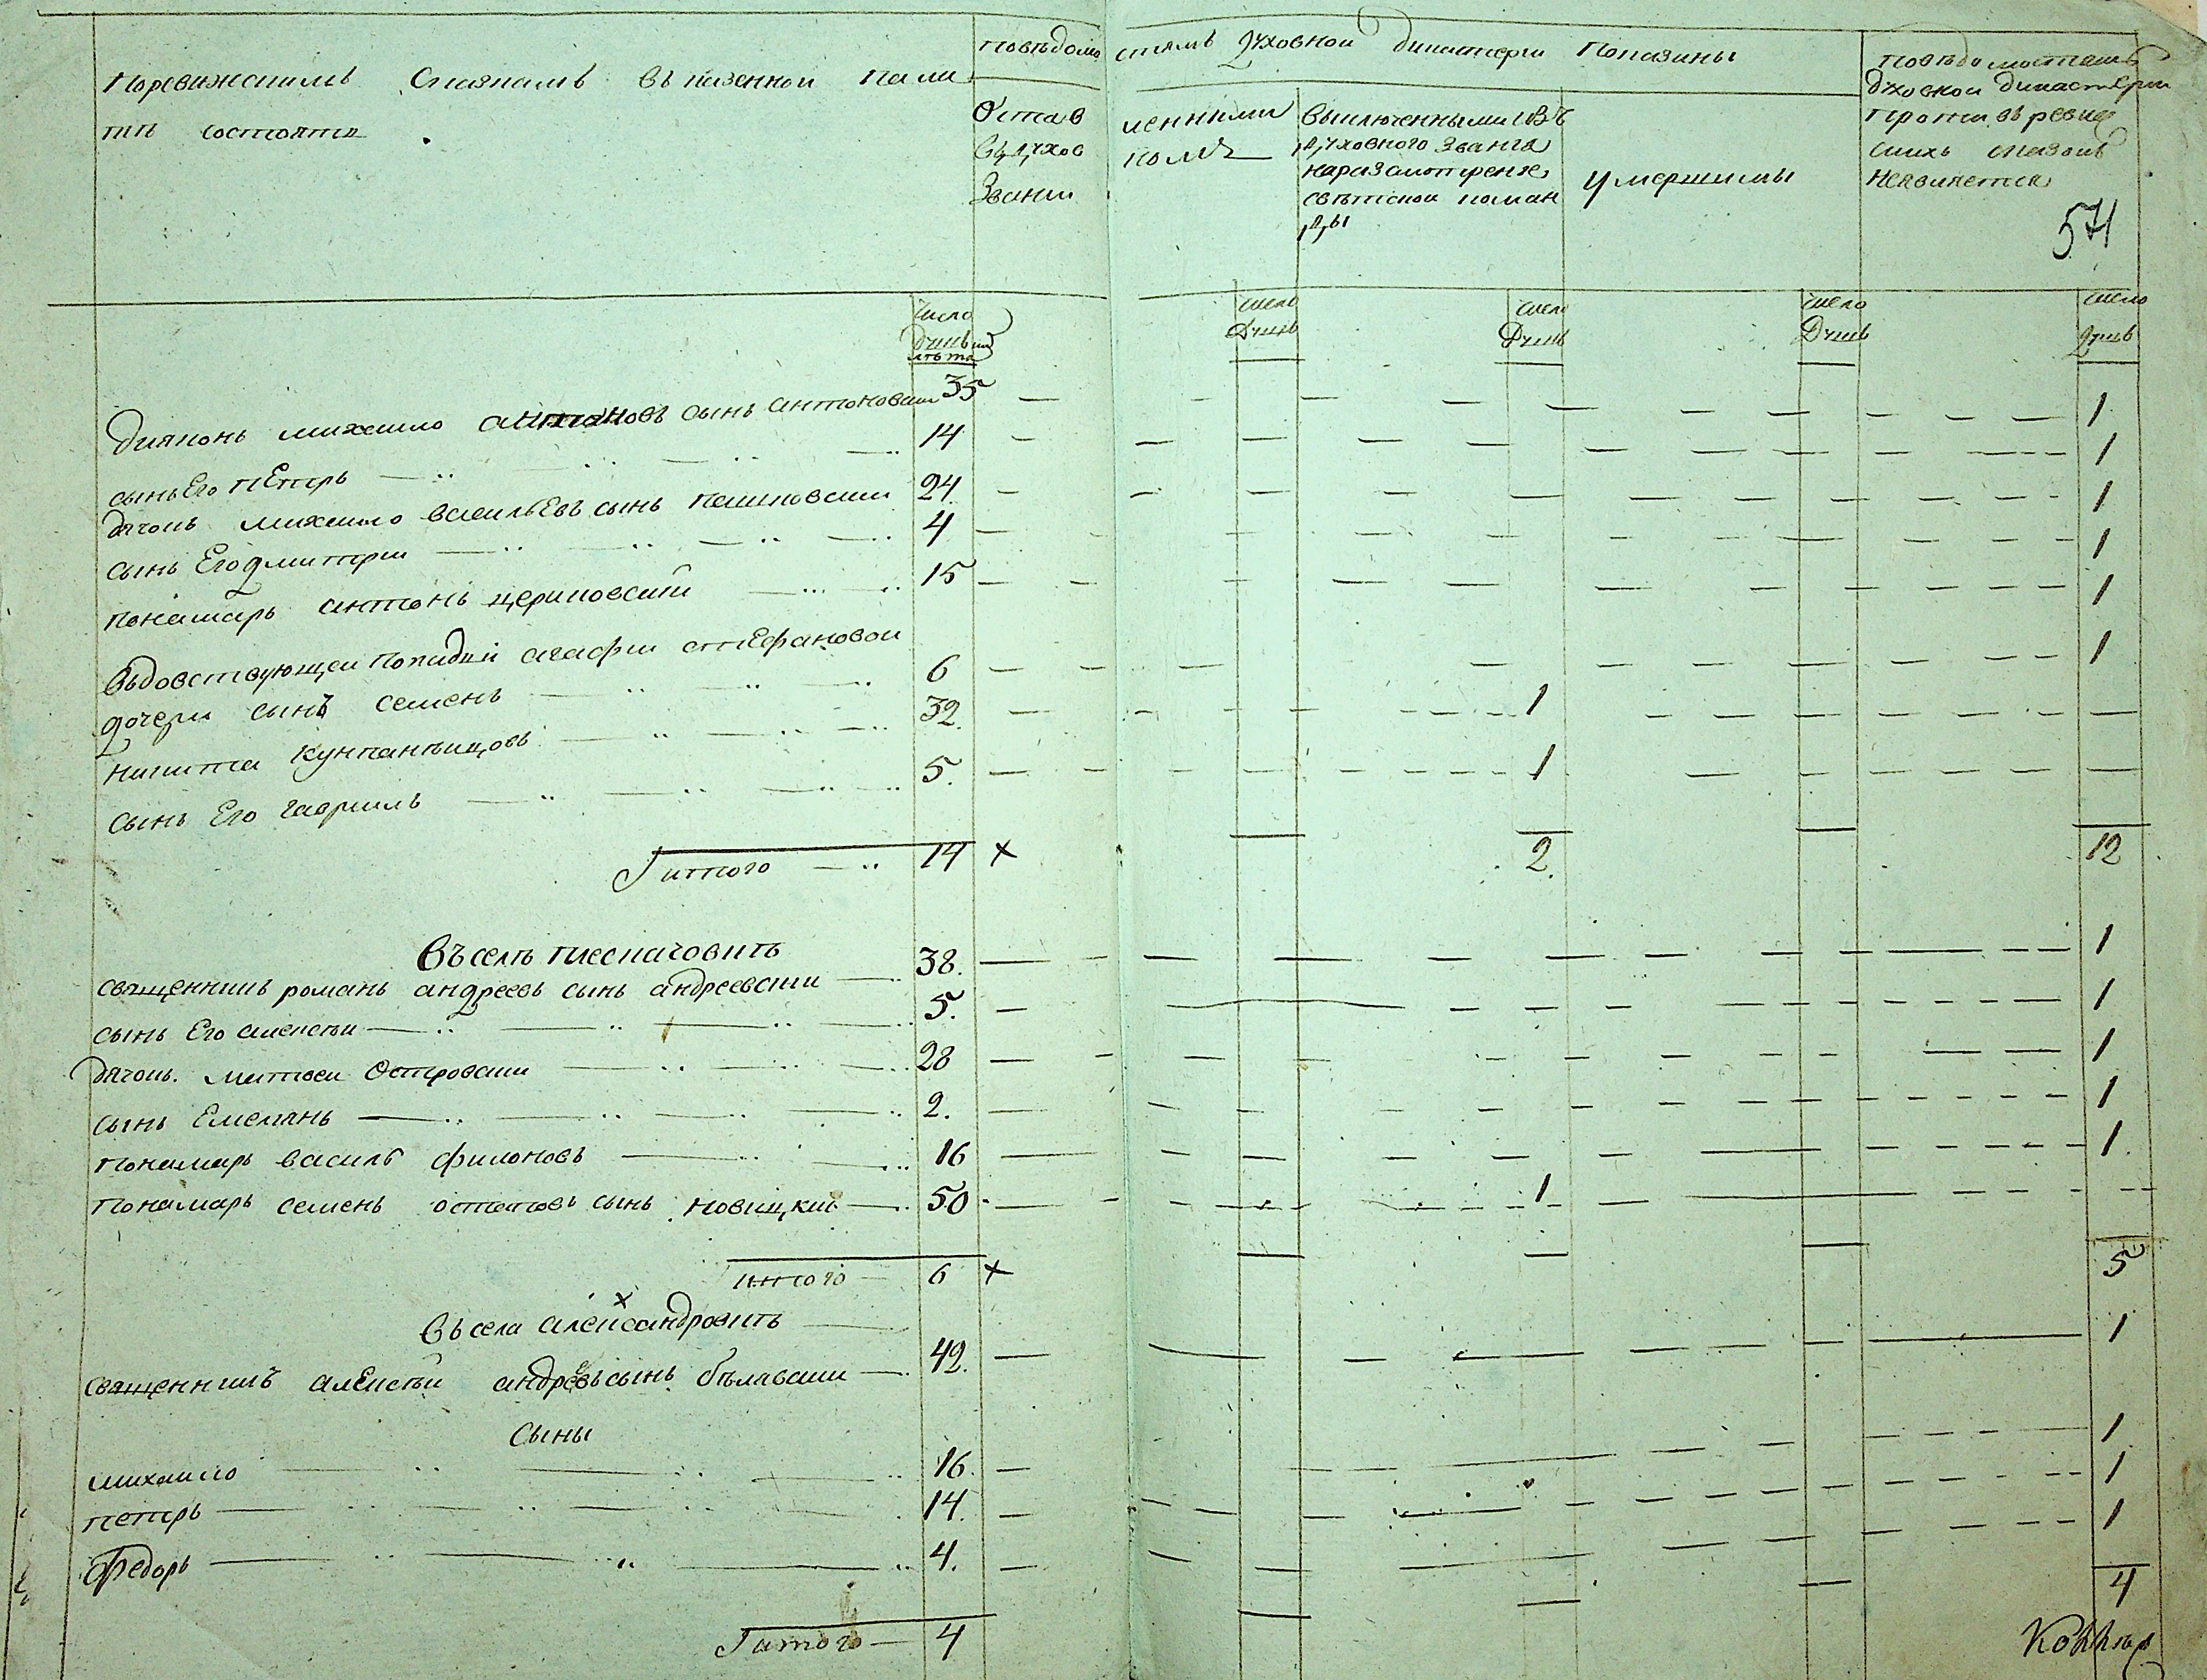 Поревижскимъ Сказкамъ въ казенной пала
тѣ состоятъ
Повѣдомо стямъ Духовной дикастерии Показаны
Остав ленными
въ духов номъ
Звании
выключенными изъ
духовного звания
на разсмотрение
свѣтской коман
ды
Умершимы
Повѣдомостямъ
духовной дикастерии
противъ ревиз
скихъ сказокъ
неявляется
571
число душъ и лѣта
число Душъ
число Душъ
число Душъ
число Душъ
Диаконъ михаило антоновъ сынъ антоновски 35 1
сынъ Его пЕтръ 14 1
дячокъ михаило василЕвъ сынъ 24 1
сынъ Его дмитрии 4 1
понамарь антонъ 15 1
Вьдовствующей попадии агафии стЕфановой
дочери сынъ семенъ 6 1
никита 32 1
сынъ Его гаврилъ 5 1
Итого 14 × 2 12
Въ селѣ
священникъ романъ андреевъ сынъ андреевски 38 1
сынъ Его алексѣи 5 1
дячокъ матвеи Островски 28 1
сынъ Емелянъ 2 1
понамарь василь филоновъ 16 1
понамарь семенъ сынъ новицкии 50 1
итого 6 × 5
×
въ села александровкѣ
священникъ алЕксѣи андреевъ сынъ бѣлявски 42 1
Сыны
михаило 16 1
петръ 14 1
Федоръ 4 1
Итого 4 4